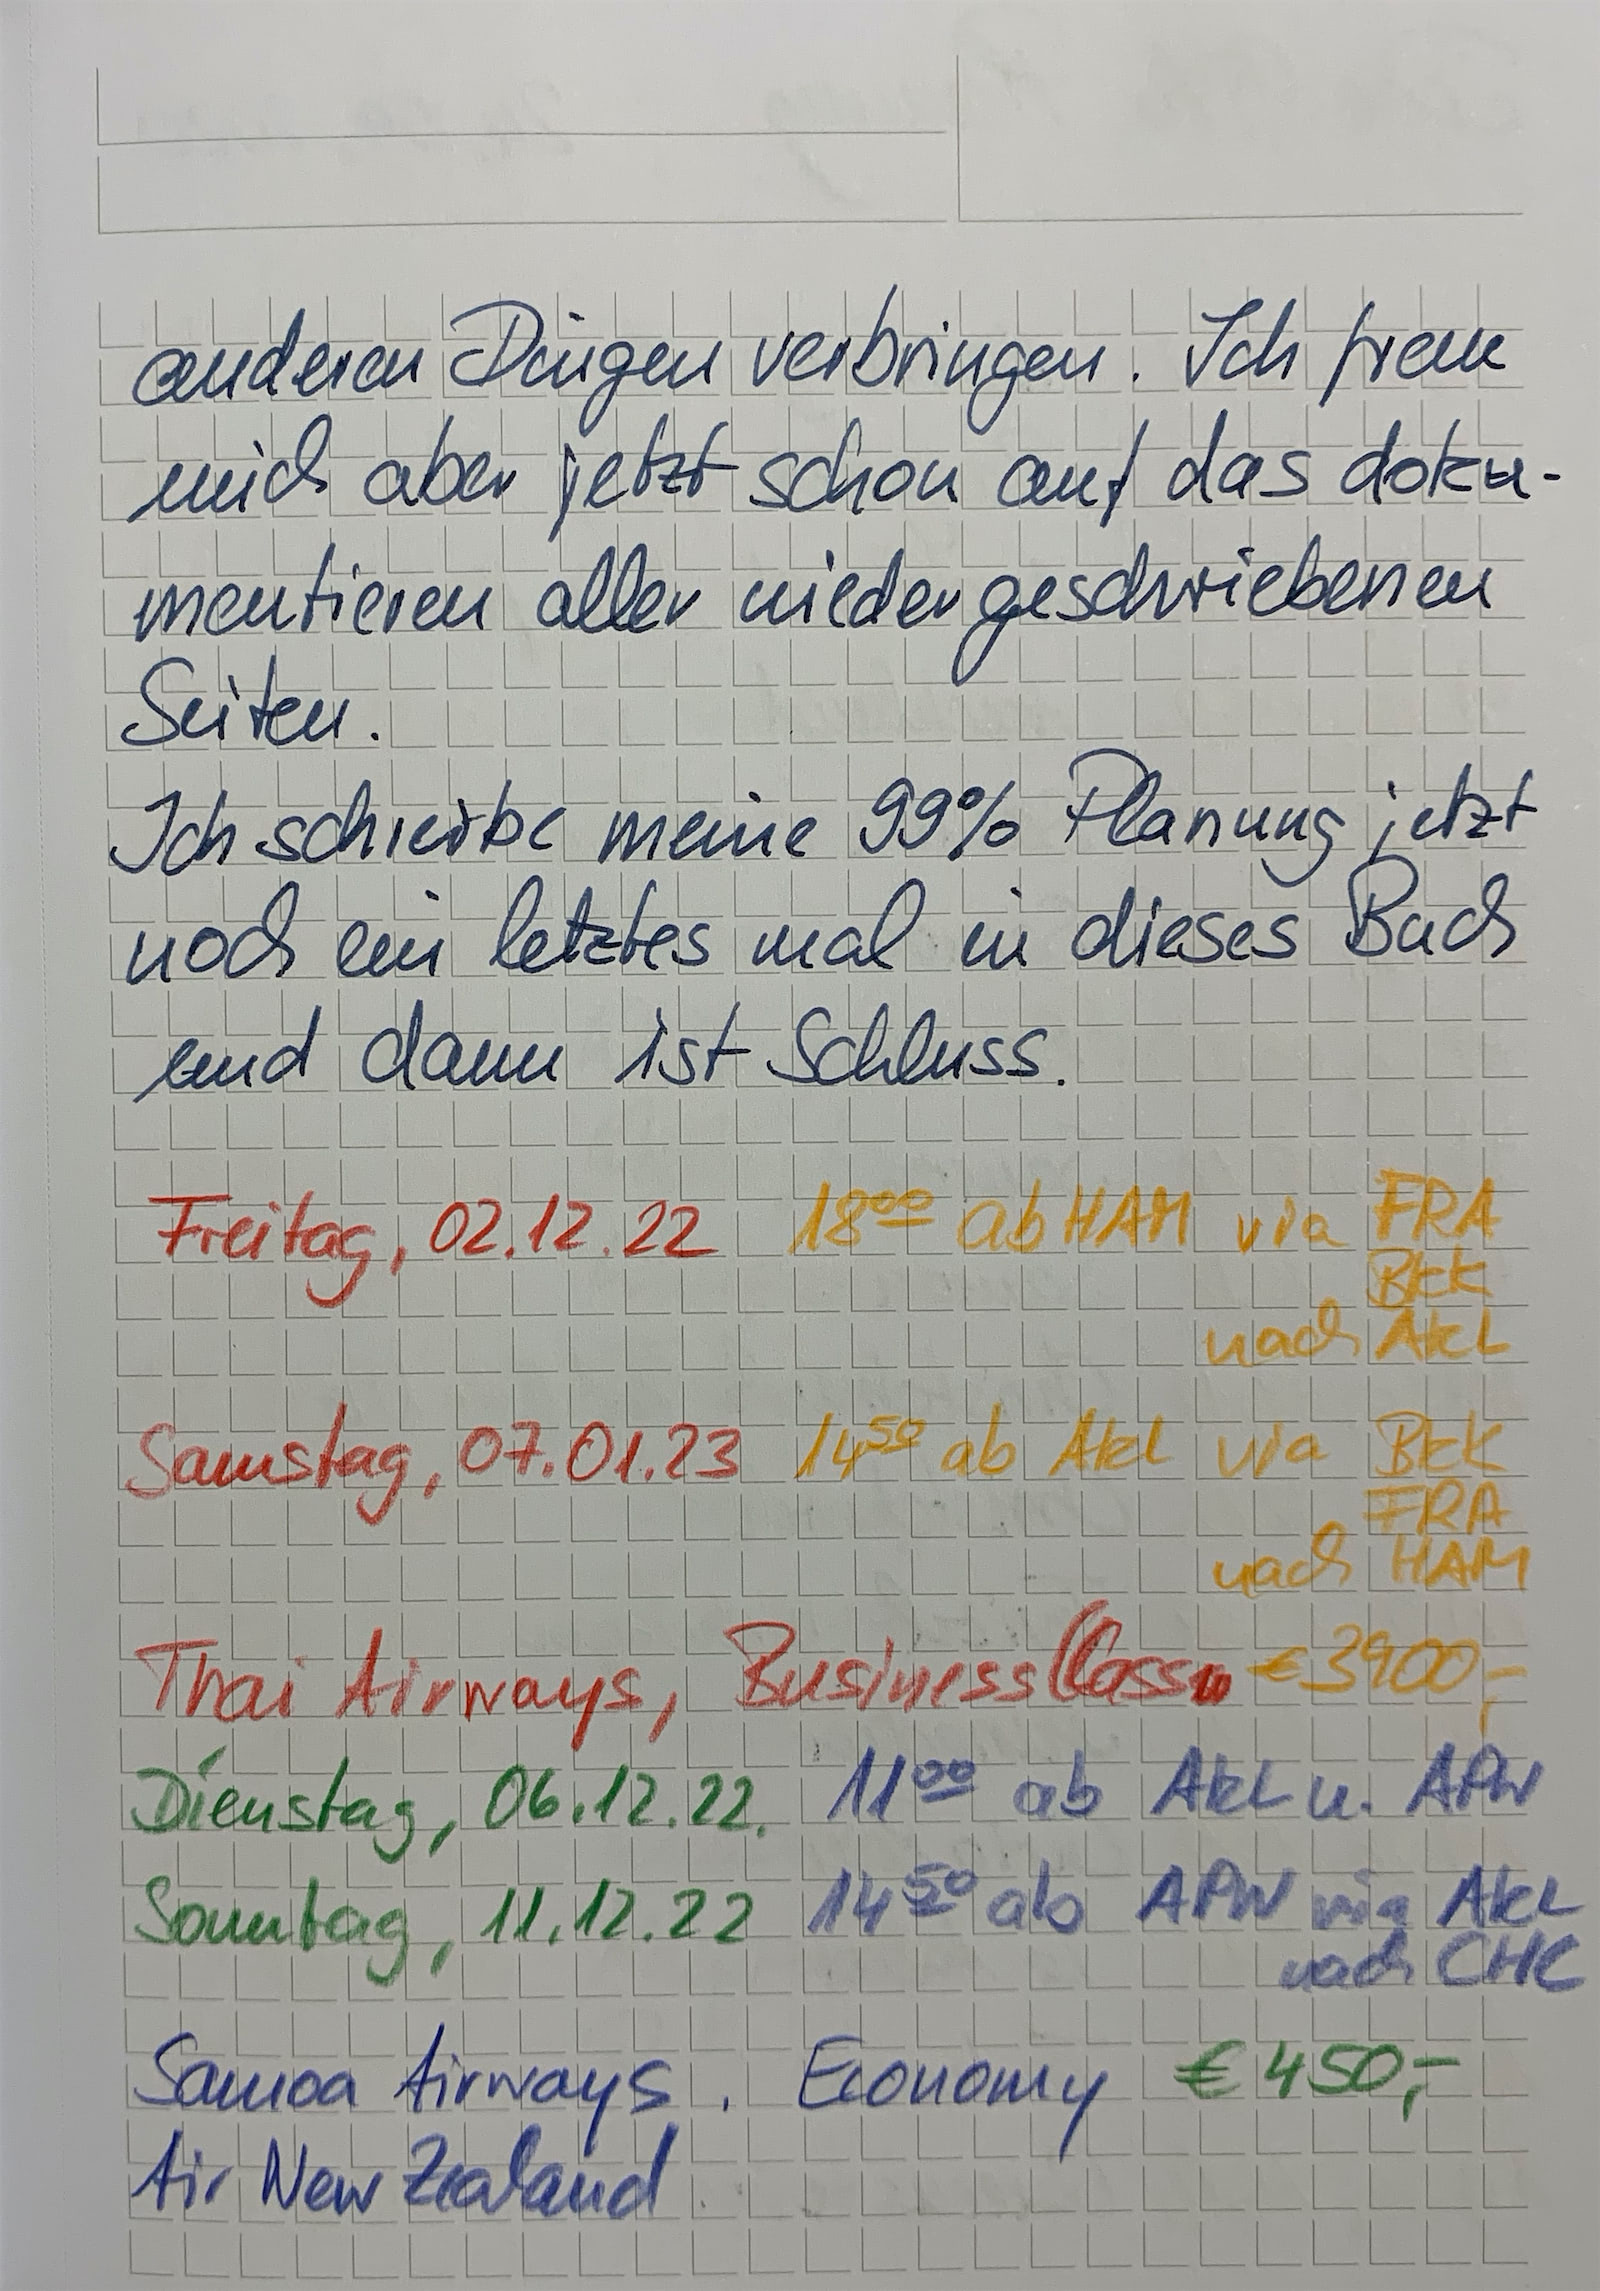 anderen Dingen verbringen. Ich freue
mich aber jetzt schon auf das doku-
mentieren aller niedergeschriebenen
Seiten.
Ich schreibe meine 99% Planung jetzt
noch ein letztes mal in dieses Buch
und dann ist Schluss.
Freitag, 02.12.22 18⁰⁰ ab HAM via FRA
BKK
nach AKL
Samstag, 07.01.23 14⁵⁰ ab AKL via BKK
FRA
nach HAM
Thai Airways, Business Class €3900,-
Dienstag, 06.12.22. 11⁰⁰ ab AKL n. APW
Sonntag, 11.12.22 14⁵⁰ ab APW via AKL
nach CHC
Samoa Airways. Economy €450,-
Air New Zealand